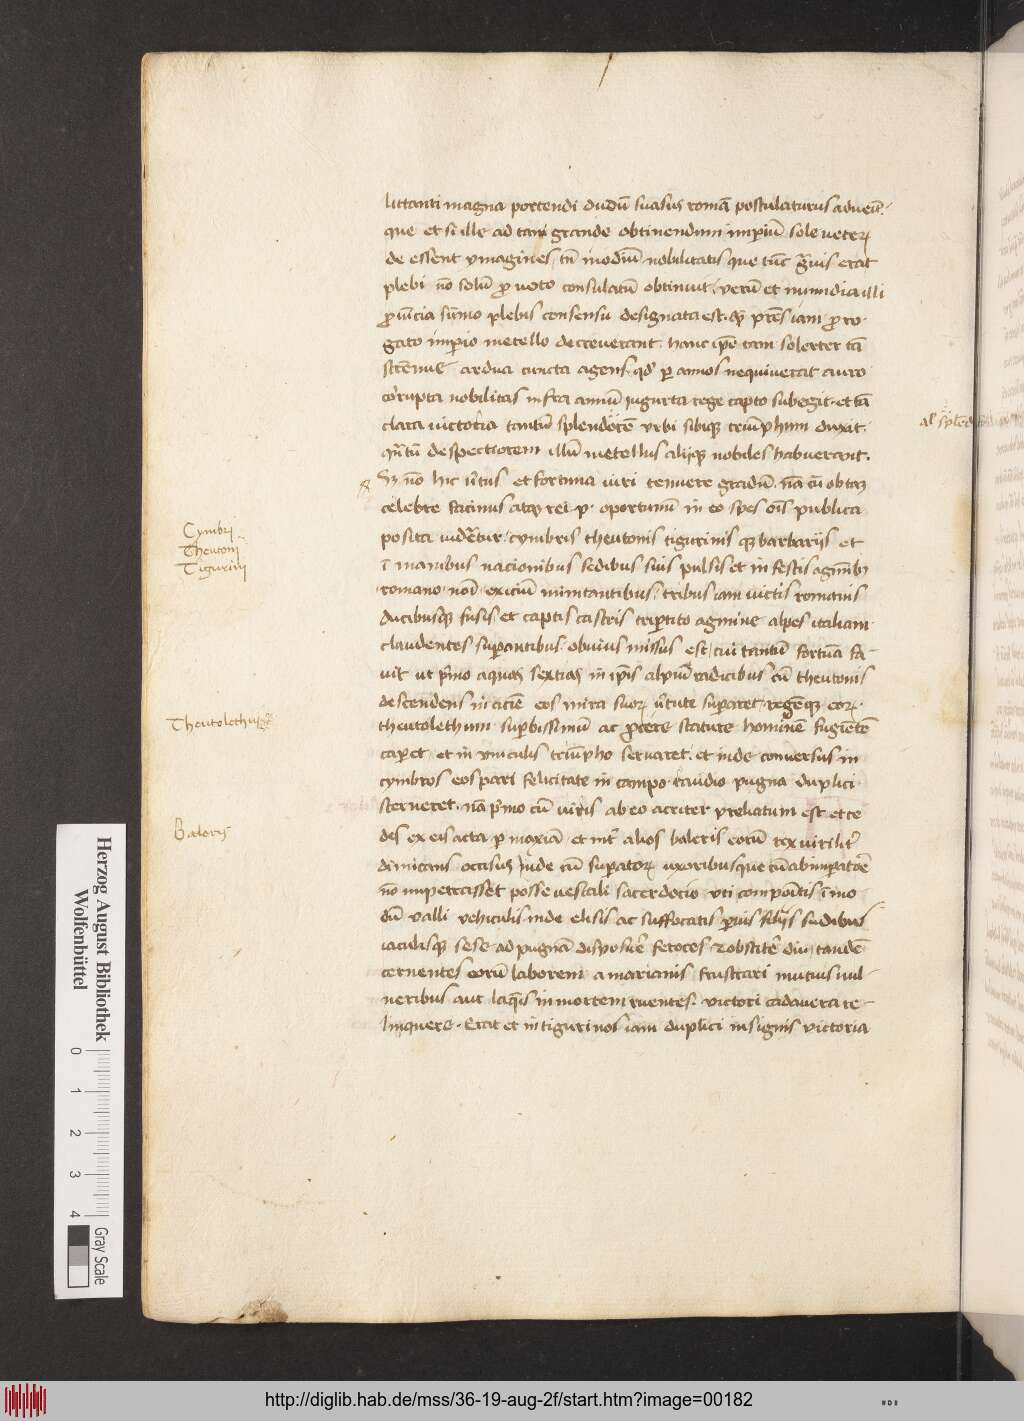 littanti magna portendi dudū suasus romā postulaturus adueīt.
que et si ille ad tam grande obtinendum imperiū sole veterꝝ
de essent ymagines, tn̄ mediū nobilitatis que tūc grauis erat
plebi nō solū pro voto consulatū obtinuit, verū et numidia illi
prouīcia sūmo plebis consensu designata est, qꝫ patres iam proro-
gato imperio metello decreuerant. hanc ipē tam solerter tā
strenue ardua cuncta agens, qd' per annos nequiuerat auro
corrupta nobilitas infra annū iugurta rege capto subegit. et tā
clara victoria tantū splendorē vrbi sibiqꝫ triūphum duxit.
quātū despectiorem illū metellus alijqꝫ nobiles habuerant.
Sꝫ nō hic virtus et fortuna viri tenuere gradū. nā cū ob tā
celebre facinus atqꝫ rei p. oportunū in eo spes oīs publica
posita videretur, cymbris theutonis tigurinis qꝫ barbarijs et
ī manibus nacionibus sedibus suis pulsis et infestis agminibꝫ
romano noī exiciū mimtantibus, tribus iam victis romanis
ducibusqꝫ fusis et captis castris tripertito agmine alpes italiam
claudentes superantibus obuius missus est, cui tantū fortuna fa-
uit ut primo aquas sextias in ipsis alpiū radicibus cū theutonis
descendens in aciē eos mira suoꝝ virtute superaret, regēqꝫ eoꝝ
theutolethum superbissimū ac procere stature hominē fugiētē
caperet et in vinculis triūpho seruaret. et inde conuersus in
cymbros eos pari felicitate in campo raudio pugna duplici
sterneret. nā primo cū viris ab eo acriter preliatum est et ce
des ex eis acta per maxīa et inter alios baleris eorū rex viriliter
dimicans occisus Inde cū superatoꝝ vxoribus que cū ab imperatore
nō impetrassēt posse vestali sacerdocio vti compositis īmo
dū valli vehiculis inde elisis ac suffocatis paruis filijs sudibus
iaculisqꝫ sese ad pugnā disposuere feroces ⁊ obstitere diu tandē
cernentes eorū laborem a marianis frustrari mutuis vul-
neribus aut laqueis in mortem ruentes. victori cadauera re-
linquere. Erat et in tigurinos iam duplici insignis victoria
Cymbri
Theutoni
Tigurini
Theutolethus
Baleris
Herzog August Bibliothek
Wolfenbüttel
0 1 2 3 4
Gray Scale
http://diglib.hab.de/mss/36-19-aug-2f/start.htm?image=00182